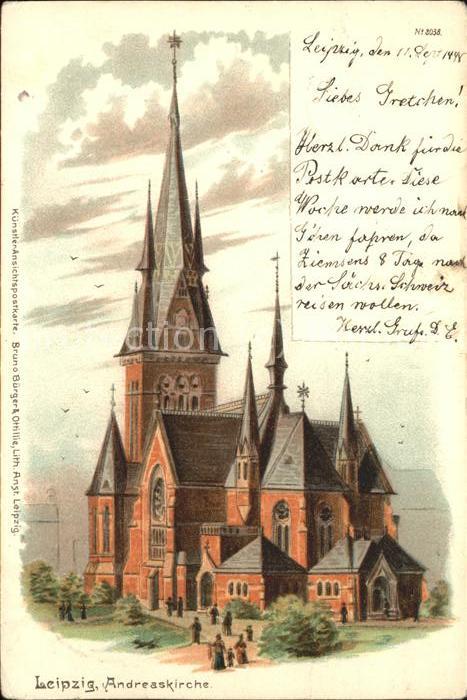 No 2038.
Leipzig, den 11. Sept 
Liebes Gretchen!
Herzl. Dank für die
Postkarte. Diese
Woche werde ich nach
fahren, da
Ziemsens 8 Tag. nach
der Sächs. Schweiz
reisen wollen.
Herzl. Gruß. D. E.
Künstler-Ansichtspostkarte. Bruno Bürger & Ottillie, Lith. Anst. Leipzig.
Leipzig, Andreaskirche.